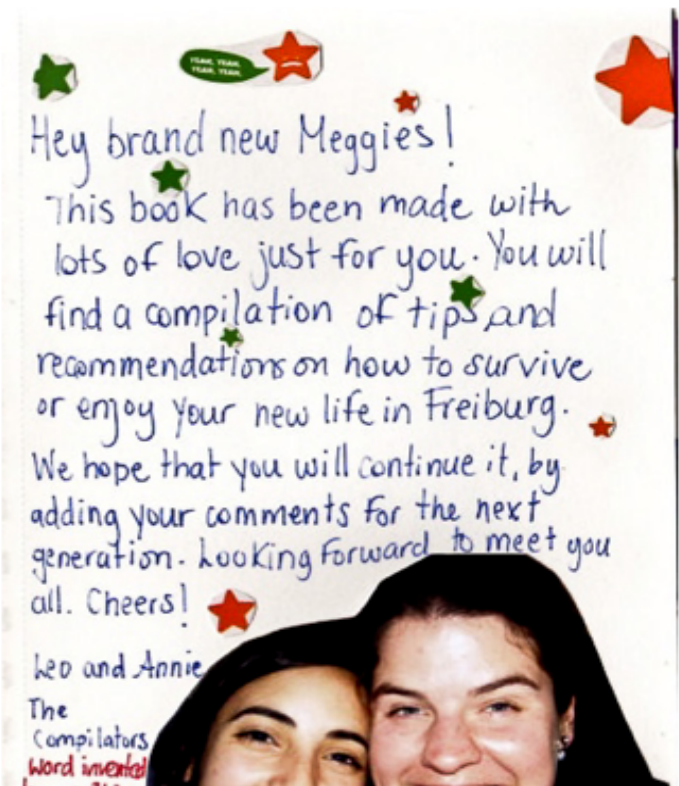 YEAH, YEAH,
YEAH, YEAH.
Hey brand new Meggies!
This book has been made with
lots of love just for you. You will
find a compilation of tips and
recommendations on how to survive
or enjoy your new life in Freiburg.
We hope that you will continue it, by
adding your comments for the next
generation. Looking forward to meet you
all. Cheers!
Leo and Annie
The
Compilators
Word invented